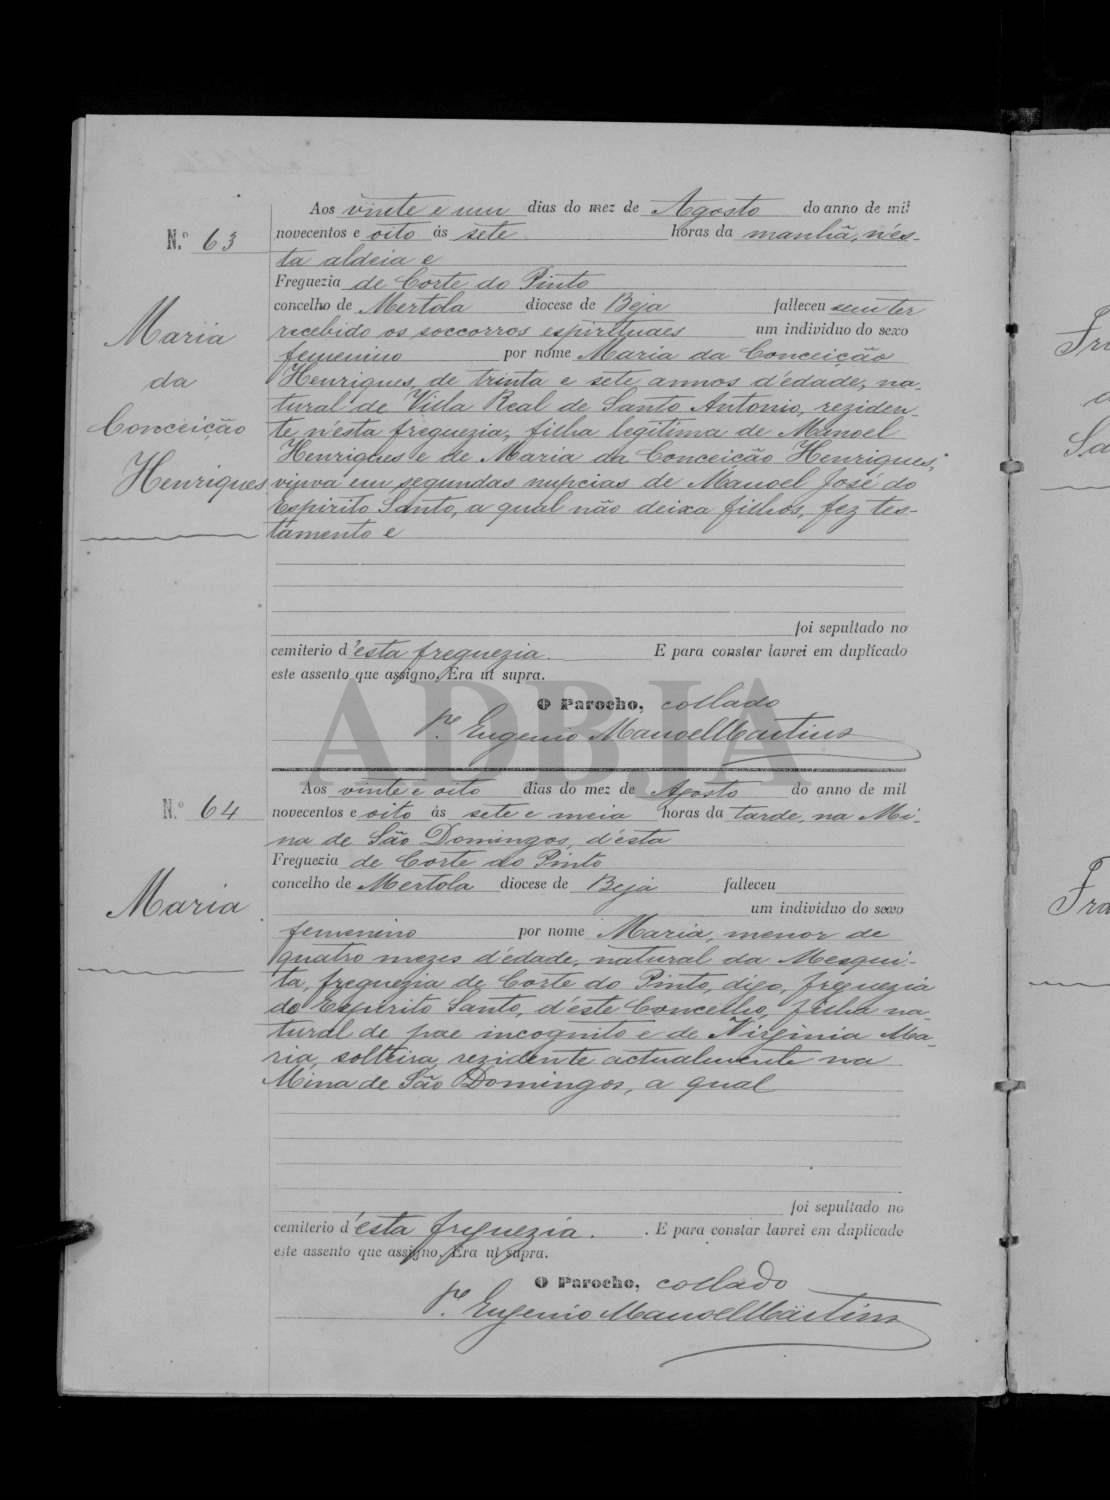 Aos vinte e um dias do mez de Agosto do anno de mil
N.º 63
novecentos e oito ás sete horas da manhã, n'es-
ta aldeia e
Freguezia de Corte do Pinto
concelho de Mertola diocese de Beja falleceu sem ter
recebido os soccorros espirituaes um individuo do sexo
femenino por nome Maria da Conceição
Maria
da
Conceição
Henriques
Henriques, de trinta e sete annos d'edade, na-
tural de Villa Real de Santo Antonio, reziden-
te n'esta freguezia, filha legitima de Manoel
Henriques e de Maria da Conceição Henriques,
viuva em segundas nupcias de Manoel José do
Espirito Santo, a qual não deixa filhos, fez tes-
tamento e
foi sepultado no
cemiterio d'esta freguezia. E para constar lavrei em duplicado
este assento que assigno. Era ut supra.
O Parocho, collado
P.e Eugenio Manoel Martins
ADBJA
Aos vinte e oito dias do mez de Agosto do anno de mil
N.º 64
novecentos e oito ás sete e meia horas da tarde, na Mi-
na de São Domingos, d'ésta
Freguezia de Corte do Pinto
concelho de Mertola diocese de Beja falleceu
um individuo do sexo
Maria
femenino por nome Maria, menor de
quatro mezes d'édade, natural da Mesqui-
ta, freguezia de Corte do Pinto, digo, freguezia
do Espirito Santo, d'éste Concelho, filha na-
tural de pae incognito e de Virginia Ma-
ria, solteira, rezidente actualmente na
Mina de São Domingos, a qual
foi sepultado no
cemiterio d'ésta freguezia. E para constar lavrei em duplicado
este assento que assigno. Era ut supra.
O Parocho, collado
P.e Eugenio Manoel Martins